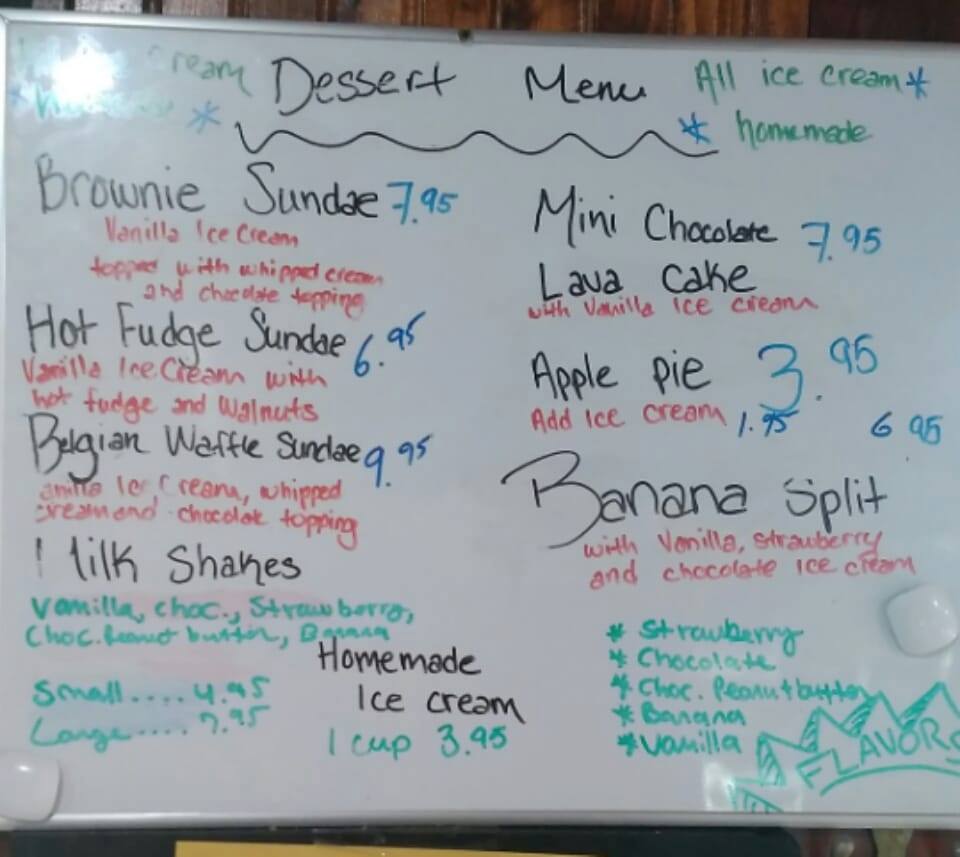 Cream
Dessert Menu
All ice cream*
* homemade
*
Brownie Sundae 7.95
Vanilla Ice Cream
topped with whipped cream
and chocolate topping
Hot Fudge Sundae 6.95
Vanilla Ice Cream with
hot fudge and Walnuts
Belgian Waffle Sundae 9.95
anilla Ice Cream, whipped
cream and chocolate topping
Milk Shakes
Vanilla, choc., Strawberry,
Choc. Peanut butter, Banana
Small.... 4.95
Large..... 7.95
Homemade
Ice cream
1 cup 3.95
Mini Chocolate 7.95
Lava Cake
with Vanilla Ice cream
Apple pie 3.95
Add Ice cream 1.95
6 95
Banana Split
with Vanilla, strawberry
and chocolate Ice cream
* Strawberry
* Chocolate
* Choc. Peanut butter
* Banana
* Vanilla
FLAVORS